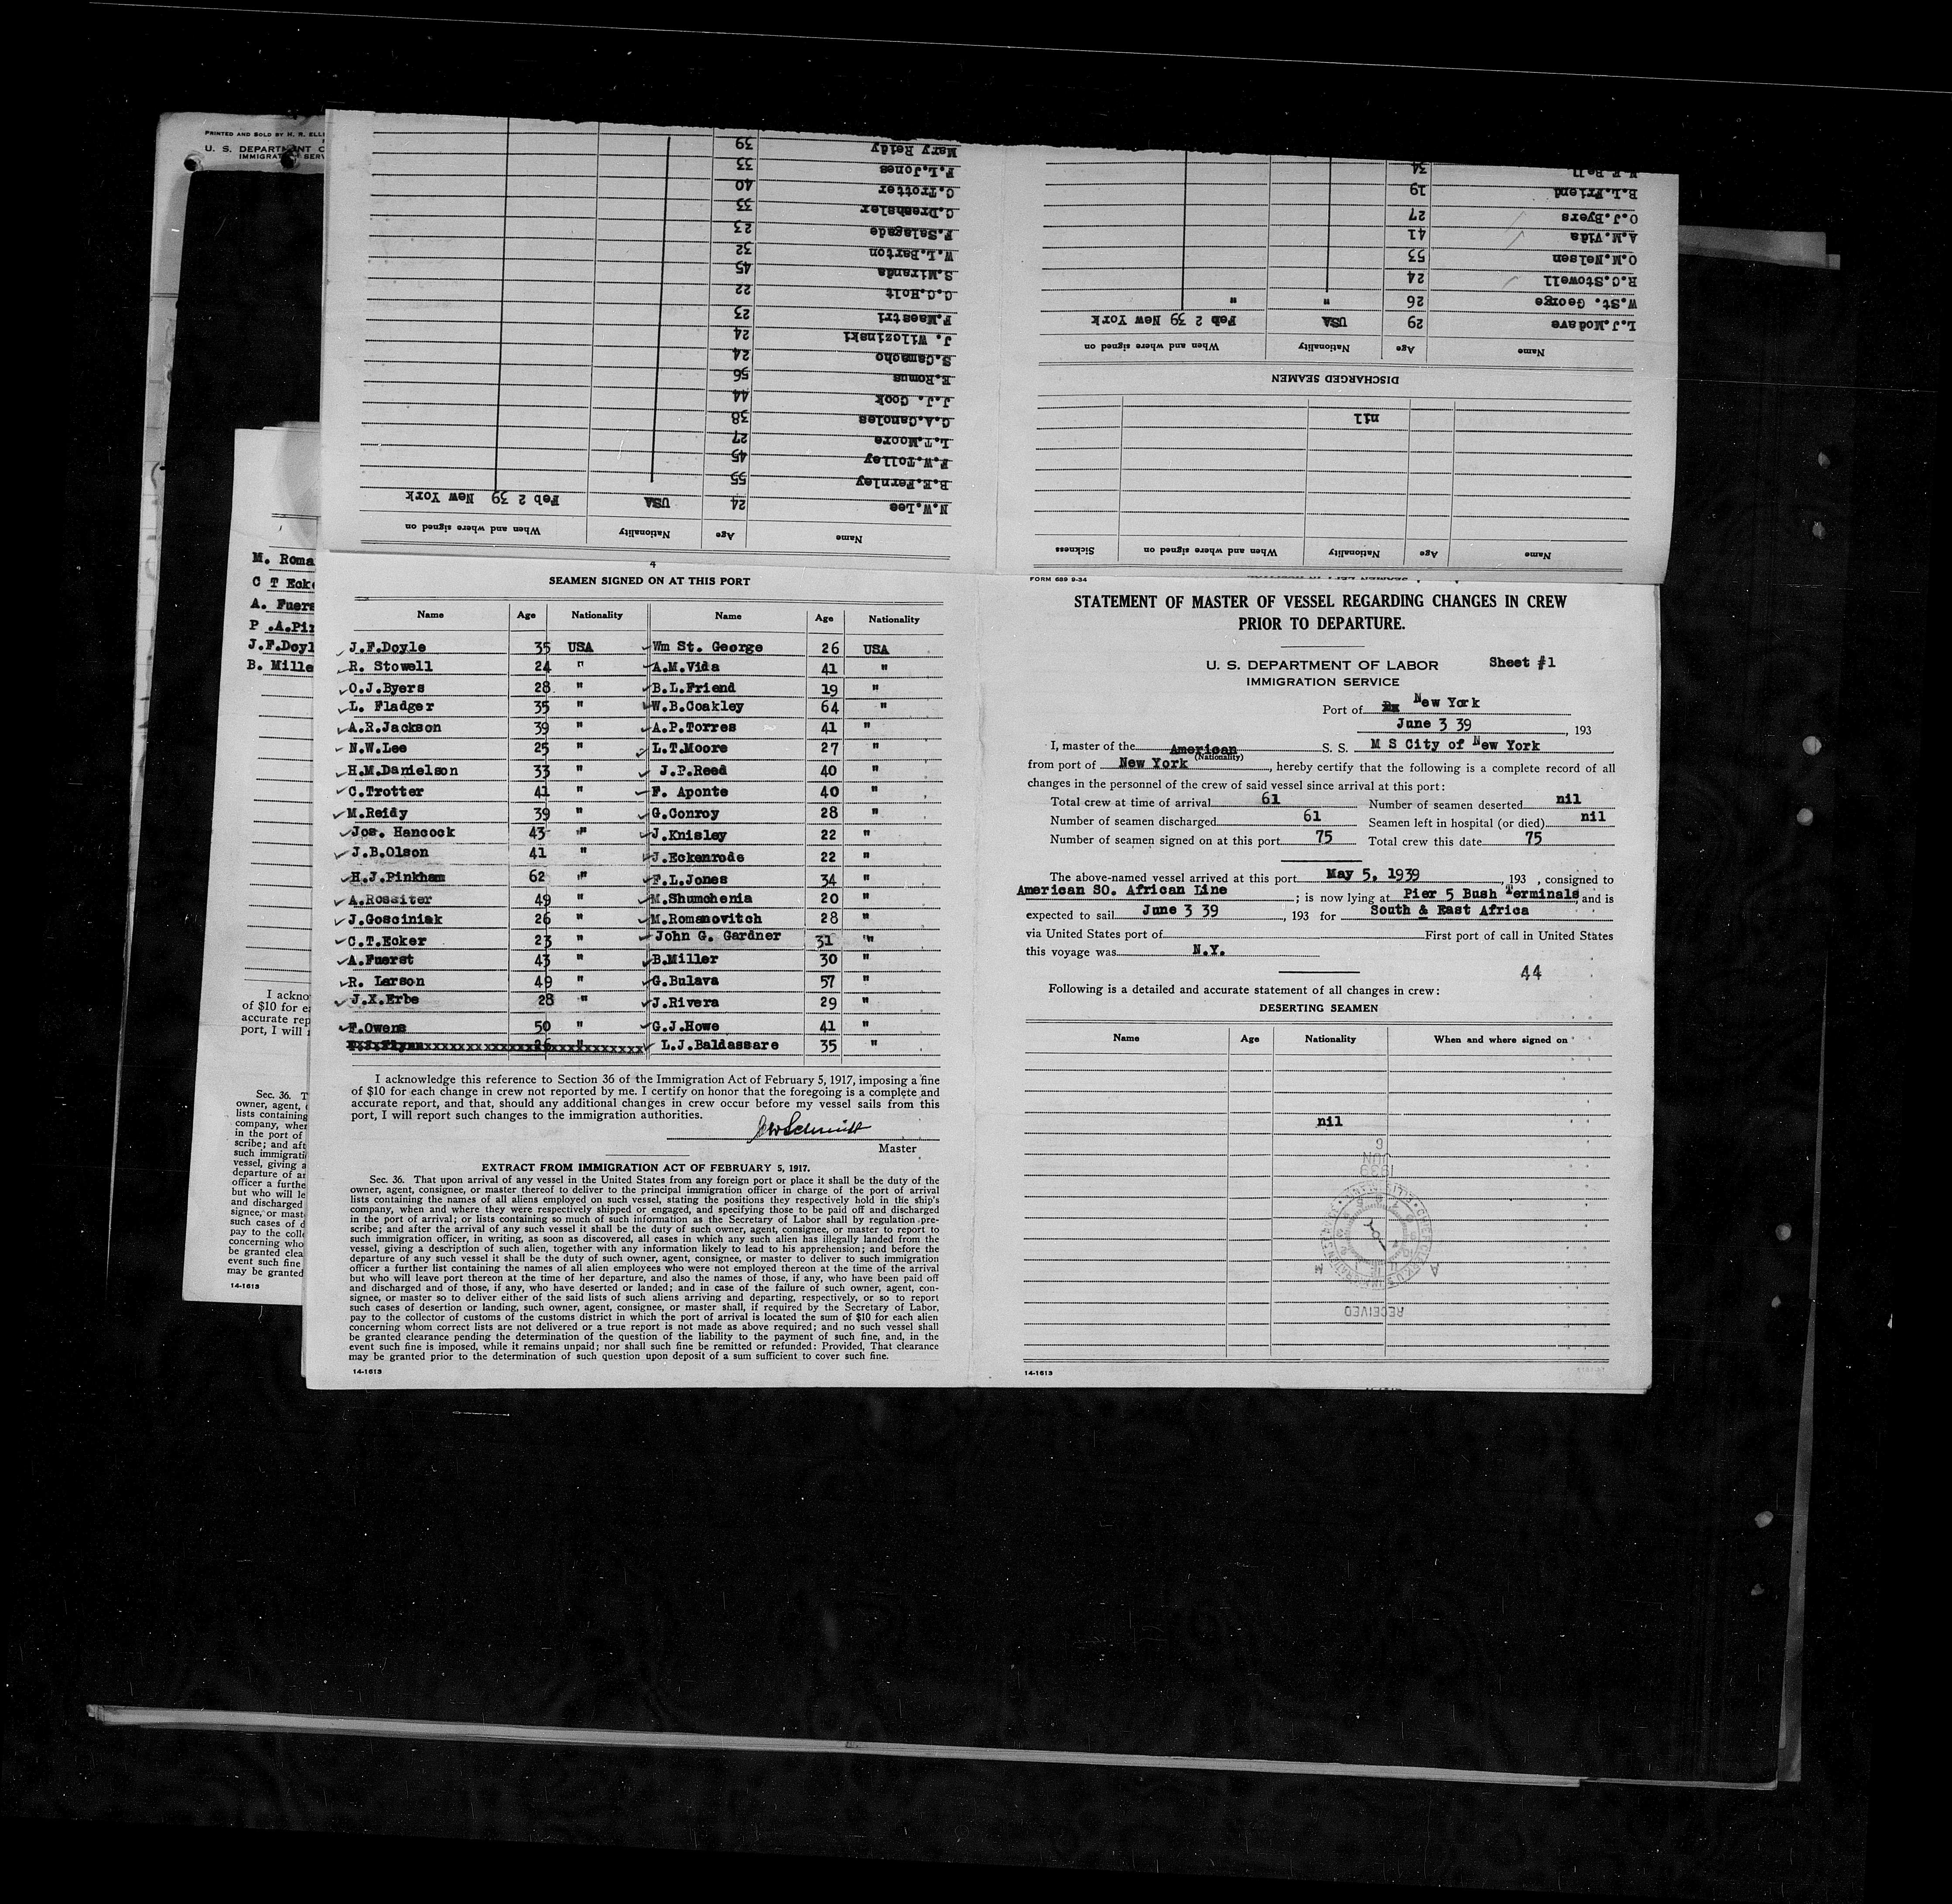 PRINTED AND SOLD BY H. R. ELLI
U. S. DEPARTMENT O
IMMIGRAT SERV
M. Roma
C T Ecke
A. Fuers
P .A.Pi
J.F.Doyl
B. Mille
I ackno
of $10 for e
accurate rep
port, I will
Sec. 36. T
owner, agent,
lists containing
company, when
in the port of
scribe; and aft
such immigrati
vessel, giving a
departure of a
officer a furthe
but who will le
and discharged
signee, or mast
such cases of d
pay to the coll
concerning who
be granted clea
event such fine
may be granted
14-1613
Name Age Nationality When and where signed on
N.W.Lee 24 USA Feb 2 39 New York
B.E.Fernley 55
F.W.Tolley 45
L.T.Moore 27
G.A.Canoles 38
J.J. Cook 44
E.Romus 56
S.Camacho 24
J. Wilozinski 24
F.Maestri 23
C.C.Holt 22
S.Miranda 45
W.L.Barton 32
F.Salagade 23
C.Dreshsler 33
C.Trotter 40
F.L.Jones 33
Mary Reidy 39
Name Age Nationality When and where signed on Sickness
nil
DISCHARGED SEAMEN
Name Age Nationality When and where signed on
L.J.Modave 29 USA Feb 2 39 New York
W.St. George 26 " "
R.C.Stowell 24
O.M.Nelsen 53
A.M.Vida 41
O.J.Byers 27
B.L.Friend 19
Bell 34
4
SEAMEN SIGNED ON AT THIS PORT
Name Age Nationality Name Age Nationality
J.F.Doyle 35 USA Wm St. George 26 USA
R. Stowell 24 " A.M.Vida 41 "
O.J.Byers 28 " B.L.Friend 19 "
L. Fladger 35 " W.B.Coakley 64 "
A.R.Jackson 39 " A.P.Torres 41 "
N.W.Lee 25 " L.T.Moore 27 "
H.M.Danielson 33 " J.P.Reed 40 "
C.Trotter 41 " F. Aponte 40 "
M.Reidy 39 " G.Conroy 28 "
Jos. Hancock 43 " J.Knisley 22 "
J.B.Olson 41 " J.Eckenrode 22 "
H.J.Pinkham 62 " F.L.Jones 34 "
A.Rossiter 49 " M.Shumchenia 20 "
J.Gosciniak 26 " M.Romanovitch 28 "
C.T.Ecker 23 " John G. Gardner 31 "
A.Fuerst 43 " B.Miller 30 "
R. Larson 49 " G.Bulava 57 "
J.X.Erbe 28 " J.Rivera 29 "
F.Owens 50 " G.J.Howe 41 "
26 " L.J.Baldassare 35 "
I acknowledge this reference to Section 36 of the Immigration Act of February 5, 1917, imposing a fine
of $10 for each change in crew not reported by me. I certify on honor that the foregoing is a complete and
accurate report, and that, should any additional changes in crew occur before my vessel sails from this
port, I will report such changes to the immigration authorities.
Schmidt
Master
EXTRACT FROM IMMIGRATION ACT OF FEBRUARY 5, 1917.
Sec. 36. That upon arrival of any vessel in the United States from any foreign port or place it shall be the duty of the
owner, agent, consignee, or master thereof to deliver to the principal immigration officer in charge of the port of arrival
lists containing the names of all aliens employed on such vessel, stating the positions they respectively hold in the ship's
company, when and where they were respectively shipped or engaged, and specifying those to be paid off and discharged
in the port of arrival; or lists containing so much of such information as the Secretary of Labor shall by regulation pre-
scribe; and after the arrival of any such vessel it shall be the duty of such owner, agent, consignee, or master to report to
such immigration officer, in writing, as soon as discovered, all cases in which any such alien has illegally landed from the
vessel, giving a description of such alien, together with any information likely to lead to his apprehension; and before the
departure of any such vessel it shall be the duty of such owner, agent, consignee, or master to deliver to such immigration
officer a further list containing the names of all alien employees who were not employed thereon at the time of the arrival
but who will leave port thereon at the time of her departure, and also the names of those, if any, who have been paid off
and discharged and of those, if any, who have deserted or landed; and in case of the failure of such owner, agent, con-
signee, or master so to deliver either of the said lists of such aliens arriving and departing, respectively, or so to report
such cases of desertion or landing, such owner, agent, consignee, or master shall, if required by the Secretary of Labor,
pay to the collector of customs of the customs district in which the port of arrival is located the sum of $10 for each alien
concerning whom correct lists are not delivered or a true report is not made as above required; and no such vessel shall
be granted clearance pending the determination of the question of the liability to the payment of such fine, and, in the
event such fine is imposed, while it remains unpaid; nor shall such fine be remitted or refunded: Provided, That clearance
may be granted prior to the determination of such question upon deposit of a sum sufficient to cover such fine.
14-1613
FORM 689 9-34
STATEMENT OF MASTER OF VESSEL REGARDING CHANGES IN CREW
PRIOR TO DEPARTURE.
U. S. DEPARTMENT OF LABOR Sheet #1
IMMIGRATION SERVICE
Port of New York
June 3 39, 193
I, master of the American S. S. M S City of New York
(Nationality)
from port of New York, hereby certify that the following is a complete record of all
changes in the personnel of the crew of said vessel since arrival at this port:
Total crew at time of arrival 61 Number of seamen deserted nil
Number of seamen discharged 61 Seamen left in hospital (or died) nil
Number of seamen signed on at this port 75 Total crew this date 75
The above-named vessel arrived at this port May 5, 1939, 193 , consigned to
American SO. African Line; is now lying at Pier 5 Bush Terminals, and is
expected to sail June 3 39, 193 for South & East Africa
via United States port of First port of call in United States
this voyage was N.Y.
44
Following is a detailed and accurate statement of all changes in crew:
DESERTING SEAMEN
Name Age Nationality When and where signed on
nil
9
JUN
1939
RECEIVED
A M
14-1613